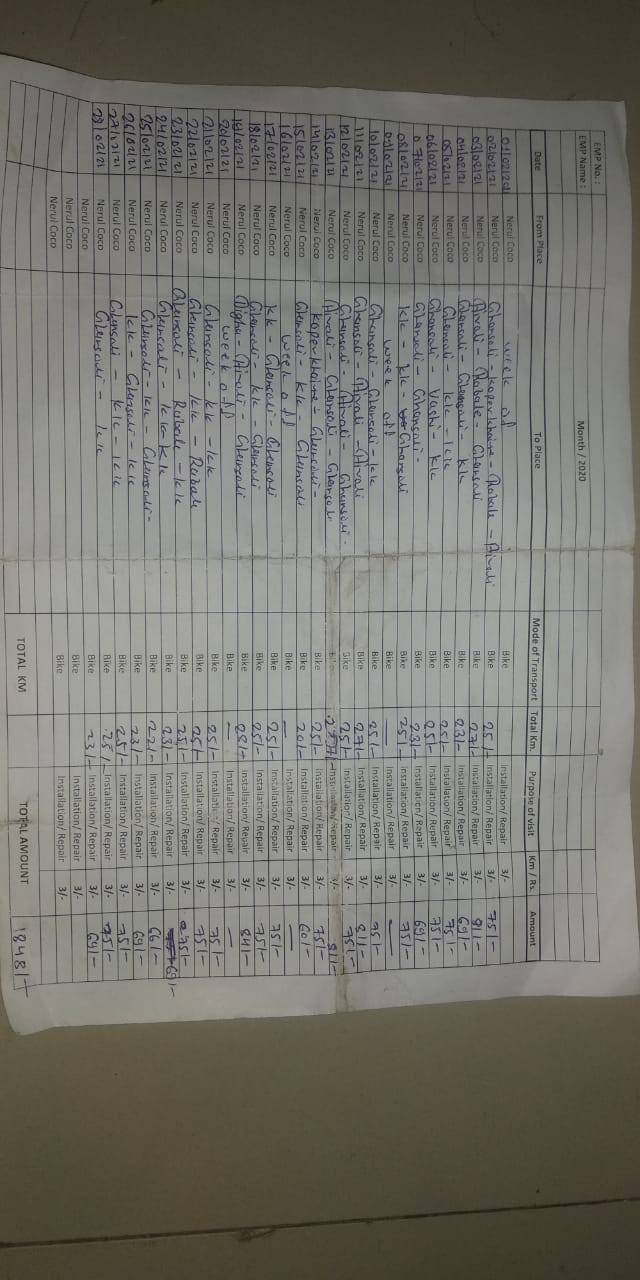 EMP No. :
EMP Name : Month / 2020
Date From Place To Place Mode of Transport Total Km. Purpose of visit Km / Rs. Amount
01/02/2021 Nerul Coco week off Bike Installation/ Repair 3/-
02/02/21 Nerul Coco Ghansoli - Koperkhairne - Rabale - Airoli Bike 25/- Installation/ Repair 3/- 75/-
03/02/21 Nerul Coco Airoli - Rabale - Ghansoli Bike 27/- Installation/ Repair 3/- 81/-
04/02/21 Nerul Coco Ghansoli - Ghansoli - KK Bike 23/- Installation/ Repair 3/- 69/-
05/02/21 Nerul Coco Ghansoli - KK - KK Bike 25/- Installation/ Repair 3/- 75/-
06/02/21 Nerul Coco Ghansoli - Vashi - KK Bike 25/- Installation/ Repair 3/- 75/-
07/02/21 Nerul Coco Ghansoli - Ghansoli - Bike 23/- Installation/ Repair 3/- 69/-
08/02/21 Nerul Coco KK - KK - Ghansoli Bike 25/- Installation/ Repair 3/- 75/-
09/02/21 Nerul Coco week off Bike — Installation/ Repair 3/- —
10/02/21 Nerul Coco Ghansoli - Ghensoli - KK Bike 25/- Installation/ Repair 3/- 75/-
11/02/21 Nerul Coco Ghansoli - Airoli - Airoli Bike 27/- Installation/ Repair 3/- 81/-
12/02/21 Nerul Coco Ghansoli - Airoli - Ghansoli - Bike 25/- Installation/ Repair 3/- 75/-
13/02/21 Nerul Coco Airoli - Ghensoli - Ghensoli Bike 27/- Installation/ Repair 3/- 81/-
14/02/21 Nerul Coco Koperkhairne - Ghensoli - Bike 25/- Installation/ Repair 3/- 75/-
15/02/21 Nerul Coco Ghensoli - KK - Ghensoli Bike 20/- Installation/ Repair 3/- 60/-
16/02/21 Nerul Coco week off Bike — Installation/ Repair 3/- —
17/02/21 Nerul Coco KK - Ghensoli - Ghensoli Bike 25/- Installation/ Repair 3/- 75/-
18/02/21 Nerul Coco Ghensoli - KK - Ghensoli Bike 25/- Installation/ Repair 3/- 75/-
19/02/21 Nerul Coco Digha - Airoli - Ghensoli Bike 28/- Installation/ Repair 3/- 84/-
20/02/21 Nerul Coco week off Bike — Installation/ Repair 3/- —
21/02/21 Nerul Coco Ghensoli - KK - KK Bike 25/- Installation/ Repair 3/- 75/-
22/02/21 Nerul Coco Ghensoli - KK - Rubale Bike 25/- Installation/ Repair 3/- 75/-
23/02/21 Nerul Coco Ghensoli - Rubale - KK Bike 25/- Installation/ Repair 3/- 75/-
24/02/21 Nerul Coco Ghensoli - KK - KK Bike 23/- Installation/ Repair 3/- 69/-
25/02/21 Nerul Coco Ghensoli - KK - Ghensoli - Bike 22/- Installation/ Repair 3/- 66/-
26/02/21 Nerul Coco KK - Ghensoli - KK Bike 23/- Installation/ Repair 3/- 69/-
27/02/21 Nerul Coco Ghensoli - KK - KK Bike 25/- Installation/ Repair 3/- 75/-
28/02/21 Nerul Coco Ghensoli - KK Bike 25/- Installation/ Repair 3/- 75/-
Nerul Coco Bike 23/- Installation/ Repair 3/- 69/-
Nerul Coco Bike Installation/ Repair 3/-
Nerul Coco Bike Installation/ Repair 3/-
TOTAL KM TOTAL AMOUNT 1848/-